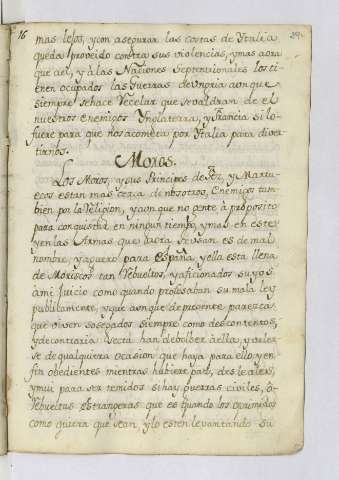 16
mas lejos, y con asegurar las costas de Ytalia
queda proveido contra sus violencias, y mas aora
que a el, y à las Naciones Septentrionales los ti-
enen ocupados las Guerras de Ungria aunque
siempre se hace Recelar que se valdran de el
nuestros enemigos Ynglaterra, y Francia si lo-
fuere para que nos acometa por Ytalia para diver
tirnos.
Moros.
Los Moros, y sus Principes de Fez, y Marru-
ecos estan mas cerca de nosotros, Enemigos tam-
bien por la Religion, y aunque no gente à proposito
para conquistar en ningun tiempo, y mas en este
y en las Armas que aora se usan es de mal
nombre, y aguero para España, y ella esta llena
de Moriscos tan Rebueltos, y aficionados suyos
à mi Juicio como quando profesaban su mala ley
publicamente, y que aunque de presente parezca
que viven sosegados siempre como descontentos,
y de contraria Recta han de bolver à ella, y valer
se de qualquiera ocasion que haya para ello, y en
fin obedientes mientras hubiere paz, desleales,
y mui para ser temidos si hay guerras civiles, ò
Rebueltas estrangeras que es quando los oprimidos
como quiera que sean, y lo esten levantando su